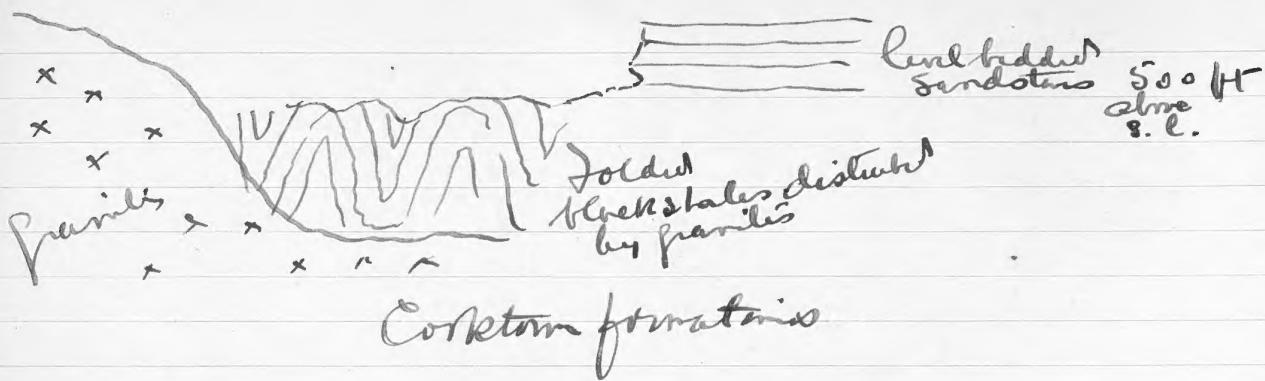 level bedded
sandstones 500 ft
above
s.l.
granites
Folded
black shales disturbed
by granites
Cooktown formations